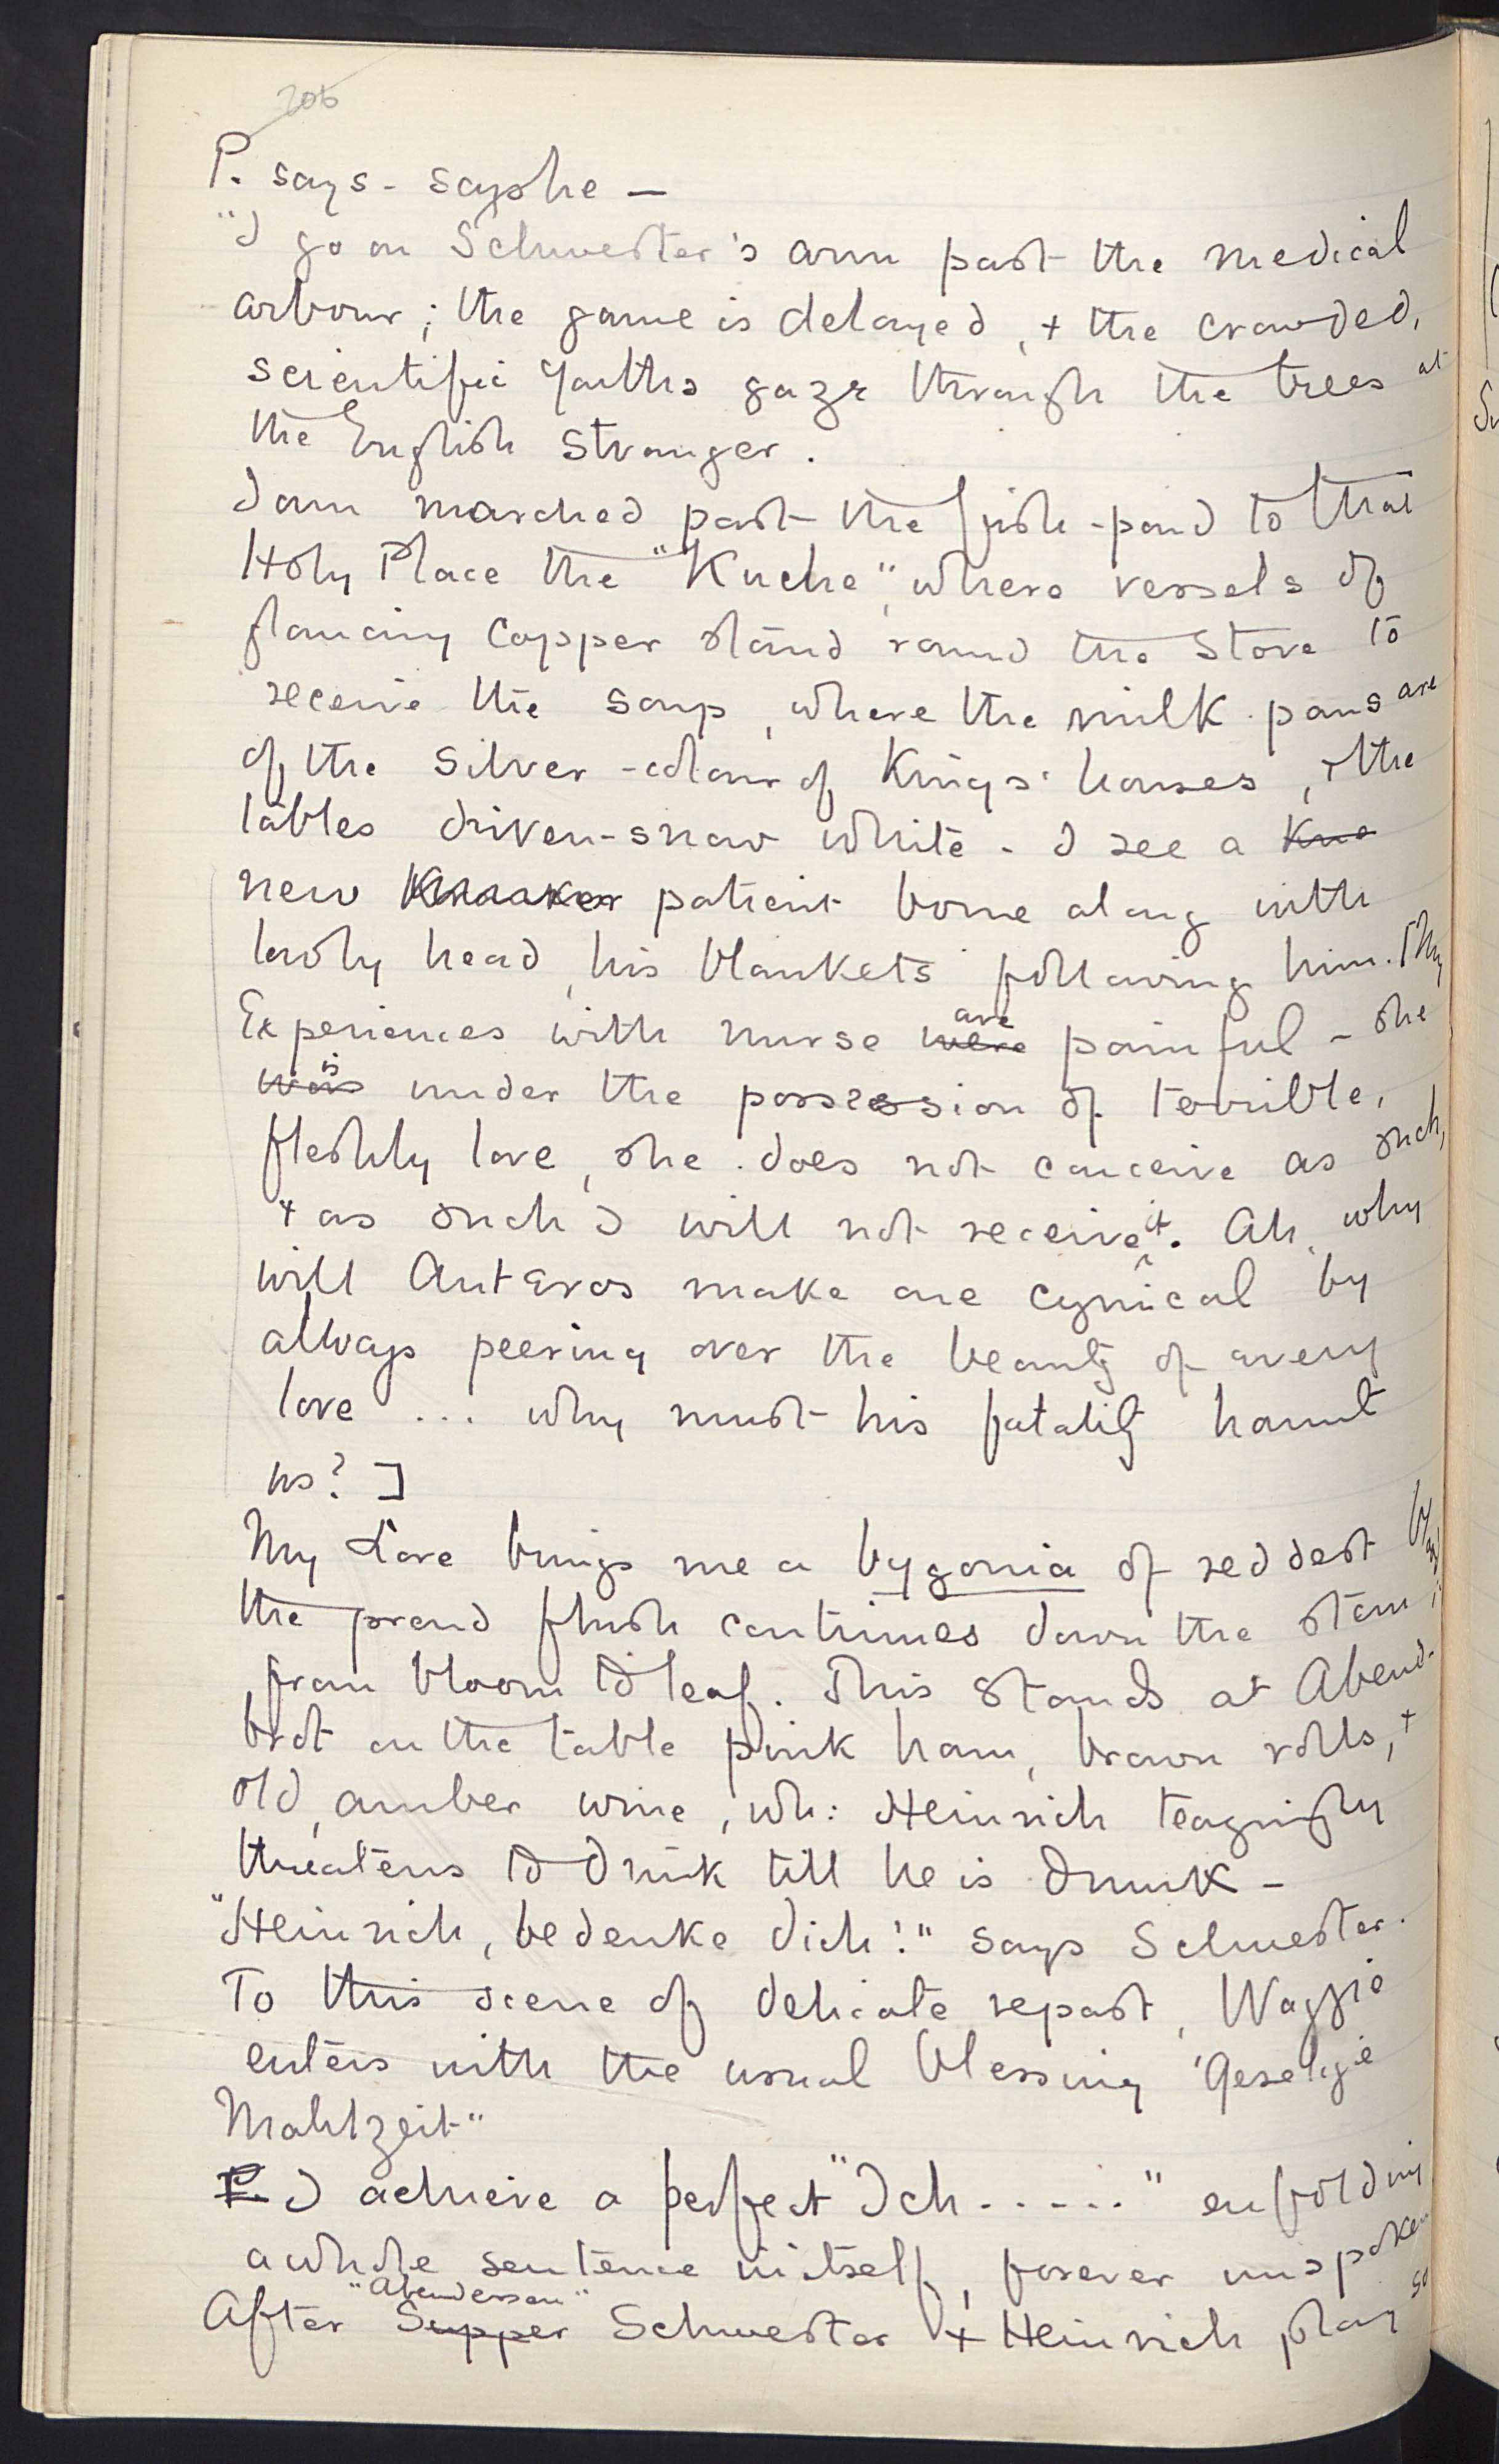 206
P. says - says she —
"I go on Schwester's arm past the medical
arbour; the game is delayed, + the crowded,
scientific youths gaze through the trees at
the English stranger.
I am marched past the fish-pond to that
Holy Place the "Kuche", where vessels of
glancing copper stand round the stove to
receive the soup, where the milk-pans are
of the silver-colour of Kings' houses, + the
tables driven-snow white. I see a
new patient borne along with
lowly head, his blankets following him. [My
Experiences with nurse were are painful - she
was is under the possession of terrible,
fleshly love, she does not conceive as such,
+ as such I will not receive it. Ah, why
will Anteros make one cynical by
always peering over the beauty of every
love ... why must his fatality haunt
us? ]
My Love brings me a bygonia of reddest
the proud flush continues down the stem,
from bloom to leaf. This stands at Abend-
brot on the table pink ham, brown rolls, +
old, amber wine, wh: Heinrich teazingly
threatens to drink till he is drunk -
"Heinrich, bedenke dich!" says Schwester.
To this scene of delicate repast, Waggie
enters with the usual blessing 'Geselgie
Mahlzeit"
P. I achieve a perfect "Ich ......" enfolding
a whole sentence in itself, forever unspoken
After Supper "Abendessen" Schwester + Heinrich play so